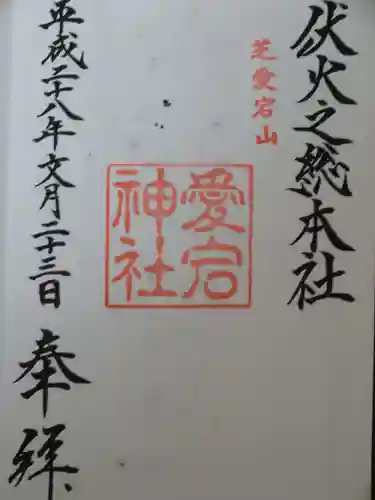 伏火之総本社
芝愛宕山
愛宕
神社
平成二十八年文月二十三日
奉拝